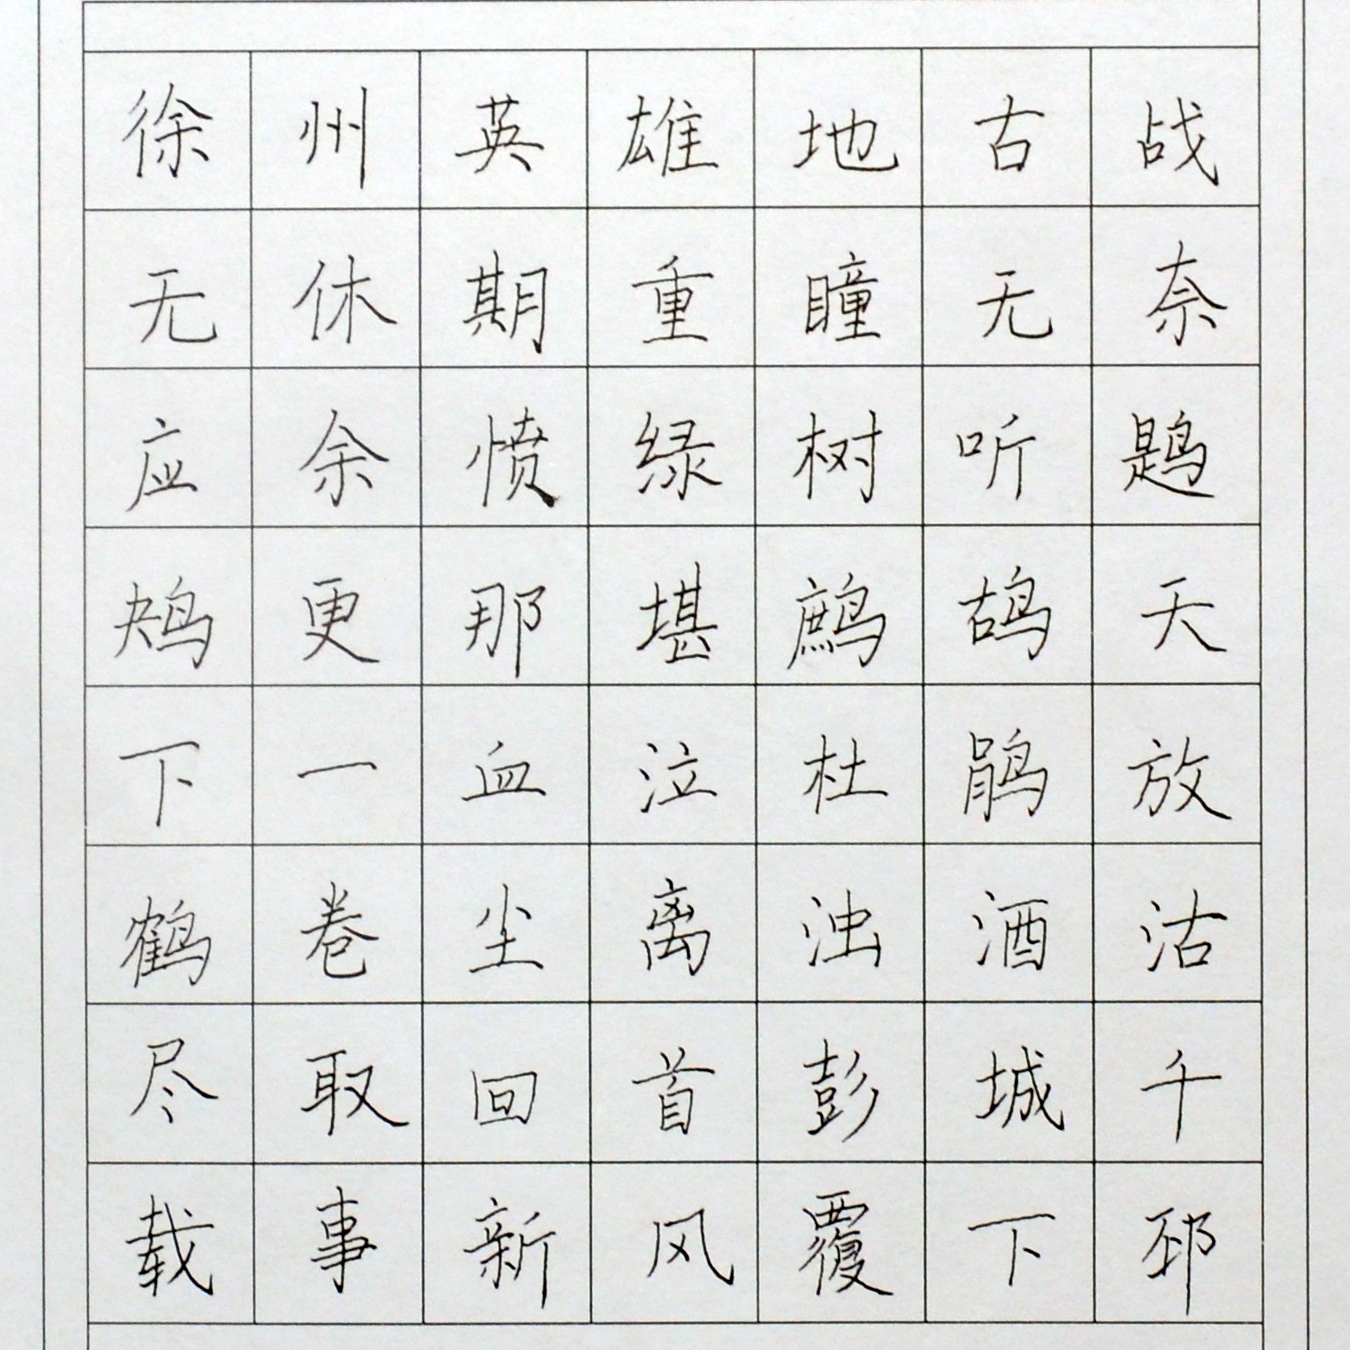 徐州英雄地古战
无休期重瞳无奈
应余愤绿树听鶗
鴂更那堪鹧鸪天
下一血泣杜鹃放
鹤卷尘离浊酒沽
尽取回首彭城千
载事新风覆下邳